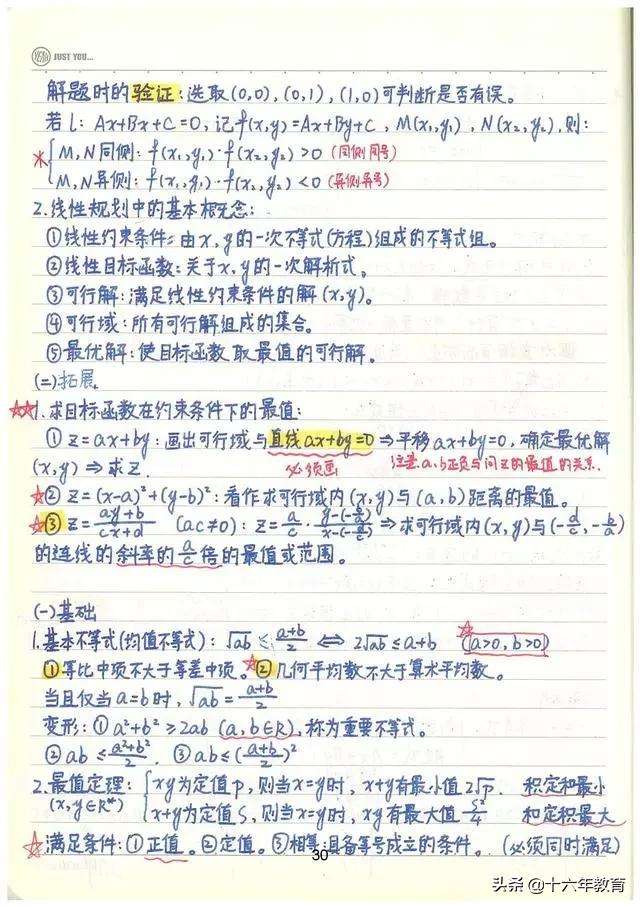 JUST YOU...
解题时的验证:选取(0,0),(0,1),(1,0)可判断是否有误。
若l: Ax+Bx+C=0,记f(x,y)=Ax+By+C, M(x₁,y₁), N(x₂,y₂),则:
M,N同侧: f(x₁,y₁)·f(x₂,y₂)>0 (同侧同号)
M,N异侧: f(x₁,y₁)·f(x₂,y₂)<0 (异侧异号)
2.线性规划中的基本概念:
①线性约束条件:由x,y的一次不等式(方程)组成的不等式组。
②线性目标函数:关于x,y的一次解析式。
③可行解:满足线性约束条件的解(x,y)。
④可行域:所有可行解组成的集合。
⑤最优解:使目标函数取最值的可行解。
(二)拓展
1.求目标函数在约束条件下的最值:
①z=ax+by:画出可行域与直线ax+by=0⇒平移ax+by=0,确定最优解
(x,y)⇒求z. 必须画 注意a、b正负与问z的最值的关系.
②z=(x-a)²+(y-b)²:看作求可行域内(x,y)与(a,b)距离的最值。
③z=(ay+b)/(cx+d) (ac≠0): z=a/c·(y-(-b/a))/(x-(-d/c))⇒求可行域内(x,y)与(-d/c,-b/a)
的连线的斜率的a/c倍的最值或范围。
(一)基础
1.基本不等式(均值不等式): √ab≤(a+b)/2 ⇔ 2√ab≤a+b (a>0,b>0)
①等比中项不大于等差中项。②几何平均数不大于算术平均数。
当且仅当a=b时,√ab=(a+b)/2
变形:①a²+b²≥2ab (a,b∈R),称为重要不等式。
②ab≤(a²+b²)/2. ③ab≤((a+b)/2)²
2.最值定理: xy为定值p,则当x=y时,x+y有最小值2√p. 积定和最小
(x,y∈R⁺) x+y为定值S,则当x=y时,xy有最大值S²/4 和定积最大
满足条件:①正值。②定值。③相等:具备等号成立的条件。(必须同时满足)
30
头条@十六年教育